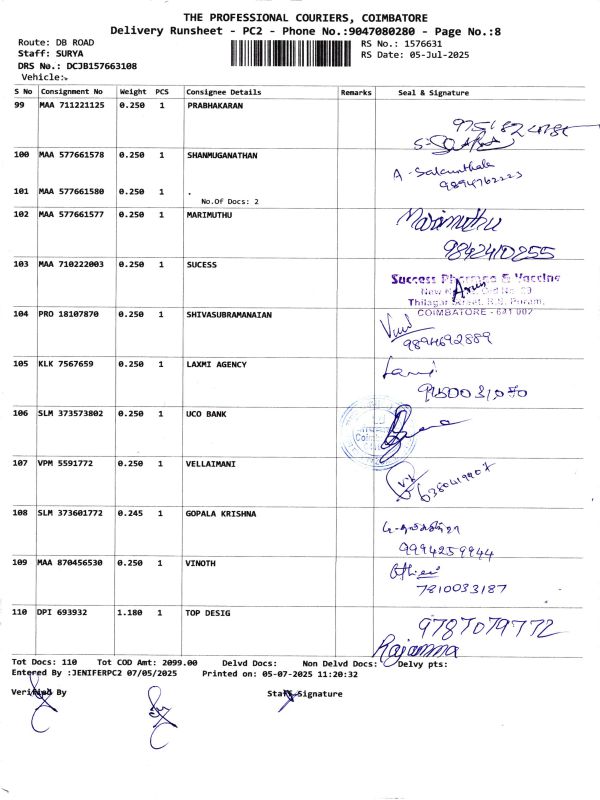 THE PROFESSIONAL COURIERS, COIMBATORE
Delivery Runsheet - PC2 - Phone No.:9047080280 - Page No.:8
Route: DB ROAD RS No.: 1576631
Staff: SURYA RS Date: 05-Jul-2025
DRS No.: DCJB157663108
Vehicle:
S No Consignment No Weight PCS Consignee Details Remarks Seal & Signature
99 MAA 711221125 0.250 1 PRABHAKARAN
100 MAA 577661578 0.250 1 SHANMUGANATHAN
A - Sakunthala
9894762223
101 MAA 577661580 0.250 1 .
No.Of Docs: 2
102 MAA 577661577 0.250 1 MARIMUTHU
Marimuthu
9842410255
103 MAA 710222003 0.250 1 SUCESS
Success Pharma & Vaccine
Thilagar Street, R.S. Puram,
COIMBATORE - 641 002
104 PRO 18107870 0.250 1 SHIVASUBRAMANAIAN
9894692889
105 KLK 7567659 0.250 1 LAXMI AGENCY
106 SLM 373573802 0.250 1 UCO BANK
107 VPM 5591772 0.250 1 VELLAIMANI
108 SLM 373601772 0.245 1 GOPALA KRISHNA
9994259944
109 MAA 870456530 0.250 1 VINOTH
7810033187
110 DPI 693932 1.180 1 TOP DESIG
9787079772
Rajamma
Tot Docs: 110 Tot COD Amt: 2099.00 Delvd Docs: Non Delvd Docs: Delvy pts:
Entered By :JENIFERPC2 07/05/2025 Printed on: 05-07-2025 11:20:32
Verified By Staff Signature